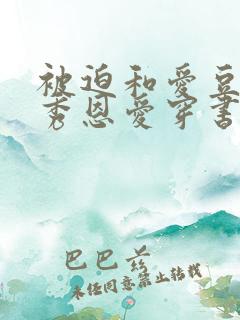 被迫和爱豆
秀恩爱穿书
巴巴兰
未经同意禁止转载